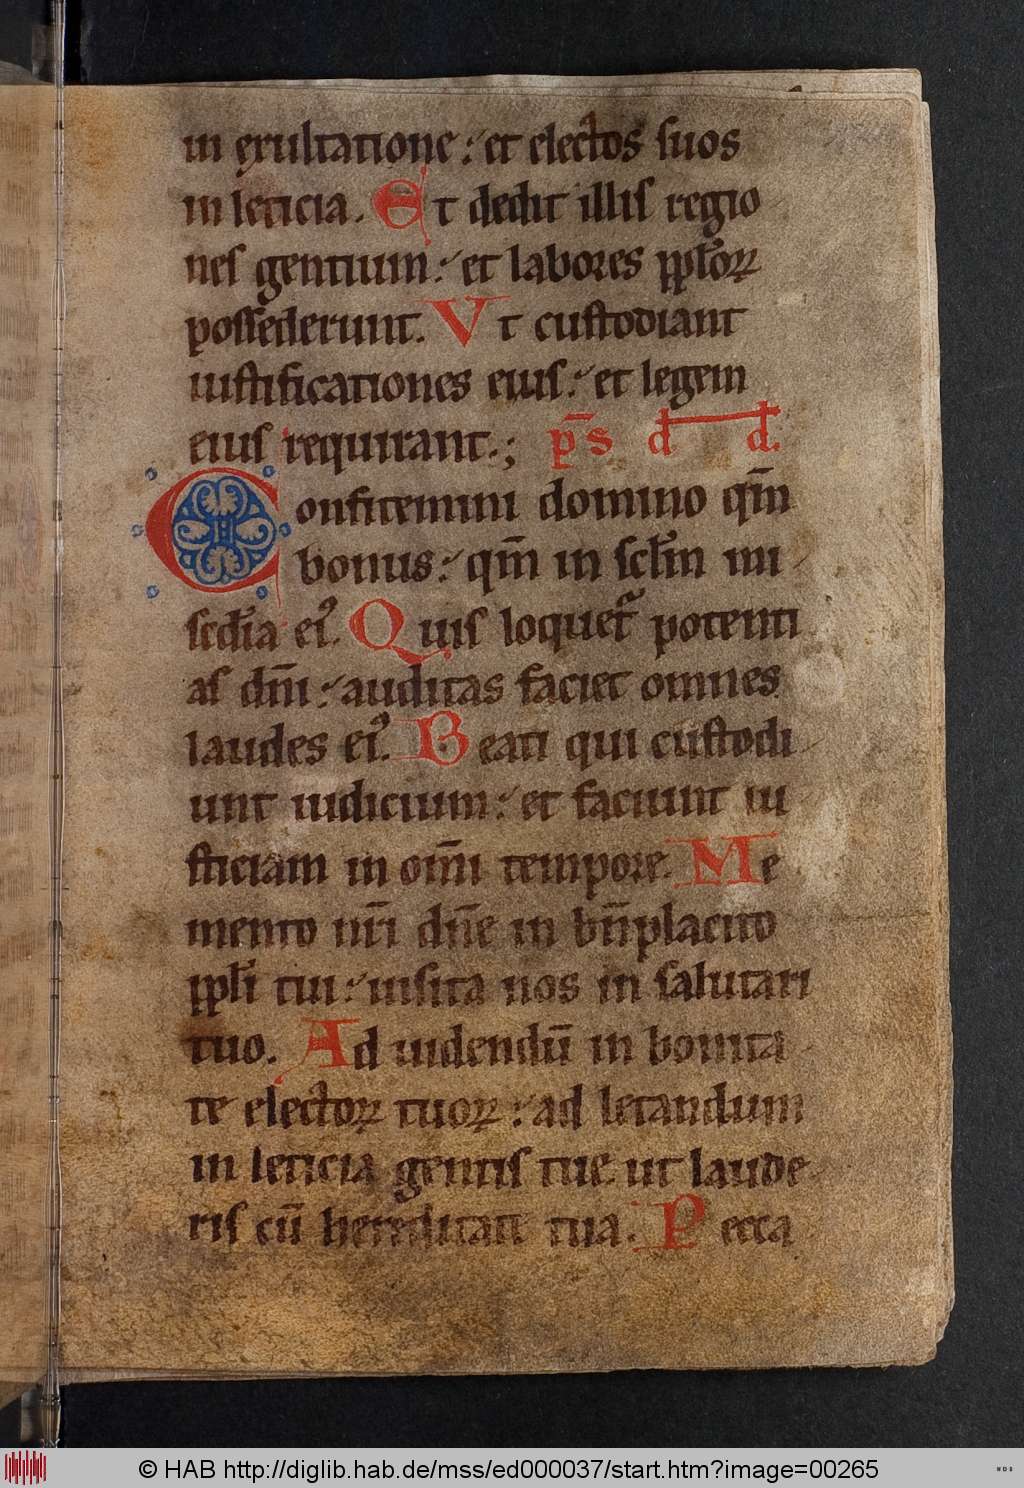 in exultatione: et elect̄os suos
in leticia. Et dedit illis regio
nes gentium: et labores pp̄lorꝝ
possederunt. Vt custodiant
iustificationes eius: et legem
eius requirant.; p̄s d̄ d̄.
Confitemini domino qm̄
bonus: qm̄ in scl̄m mi
scd̄ia ei᾿. Quis loquet᷑ potenti
as dn̄i: auditas faciet omnes
laudes ei᾿. Beati qui custodi
unt iudicium: et faciunt iu
sticiam in om̄i tempore. Me
mento nr̄i dn̄e in bn̄placito
pp̄li tui: uisita nos in salutari
tuo. Ad uidendū in bonita
te elect̄orꝝ tuorꝝ: ad letandum
in leticia gentis tue ut laude
ris cū hereditati tua. Pecca
© HAB http://diglib.hab.de/mss/ed000037/start.htm?image=00265